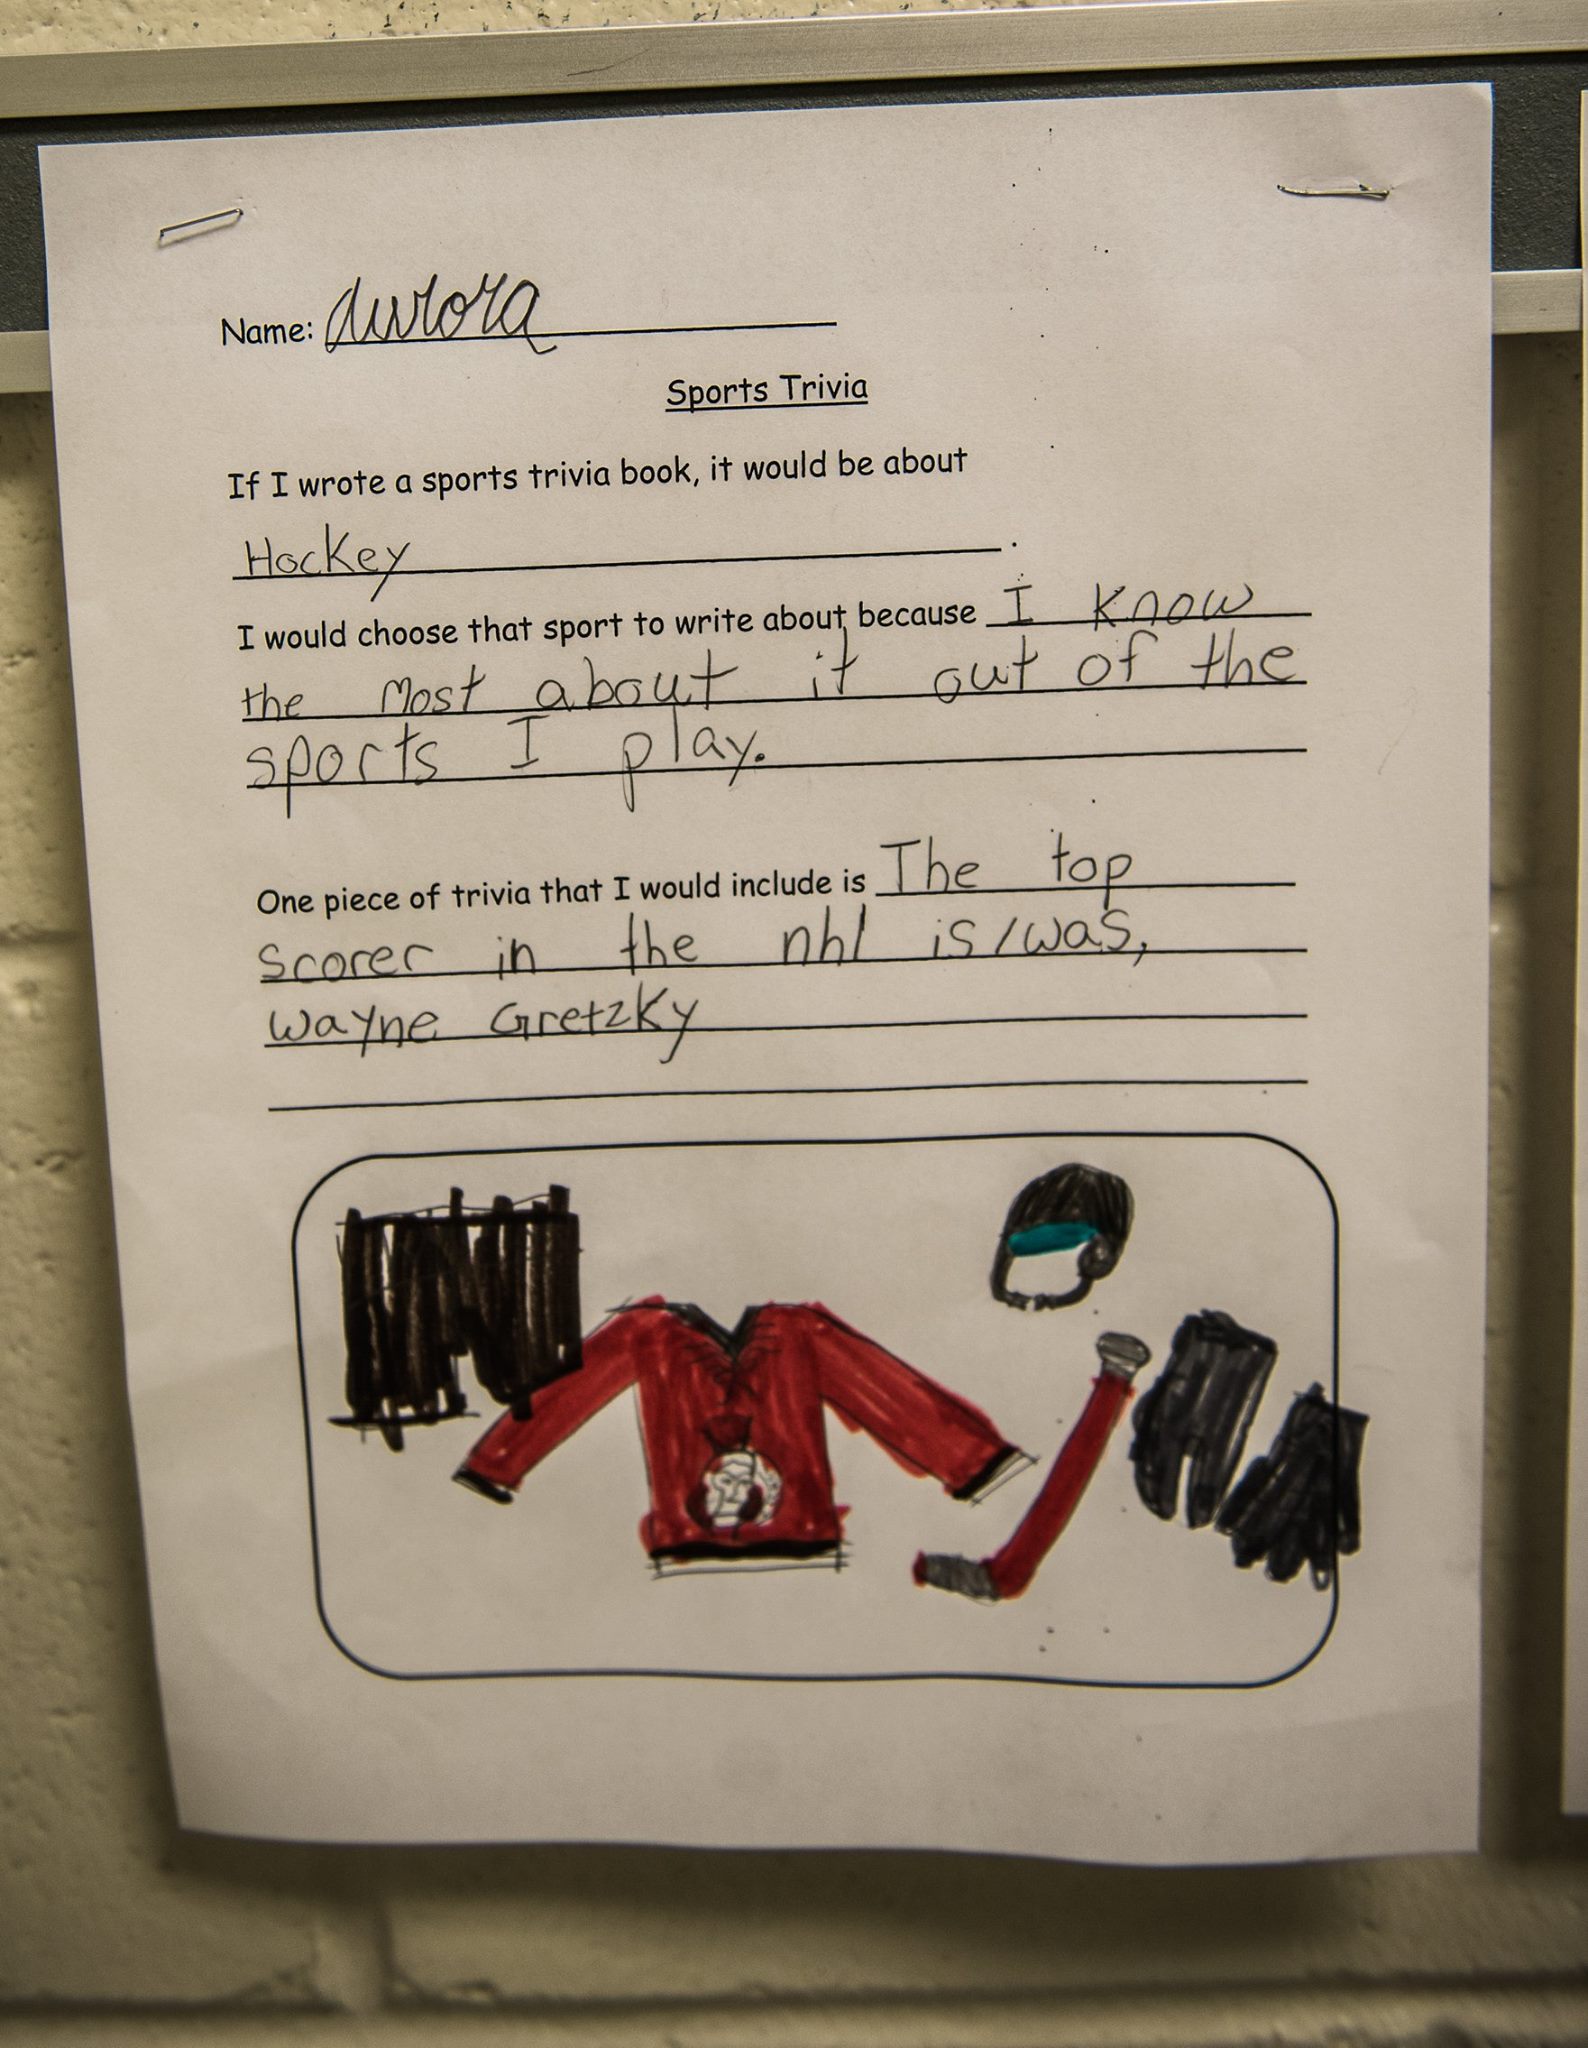 Name: Aurora
Sports Trivia
If I wrote a sports trivia book, it would be about
Hockey.
I would choose that sport to write about because I know
the most about it out of the
sports I play.
One piece of trivia that I would include is The top
scorer in the nhl is/was,
Wayne Gretzky